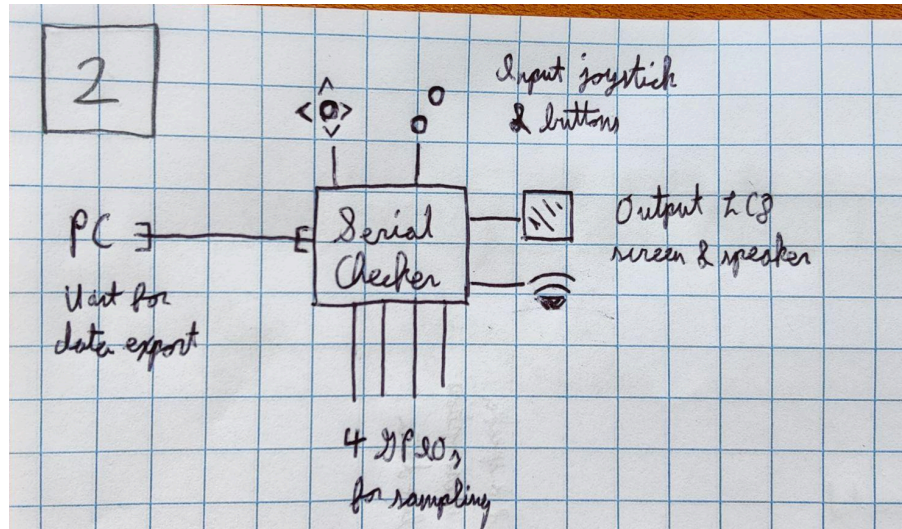 2
Input joystick
& buttons
PC
Serial
Checker
Output LCD
screen & speaker
Uart for
data export
4 GPIOs
for sampling